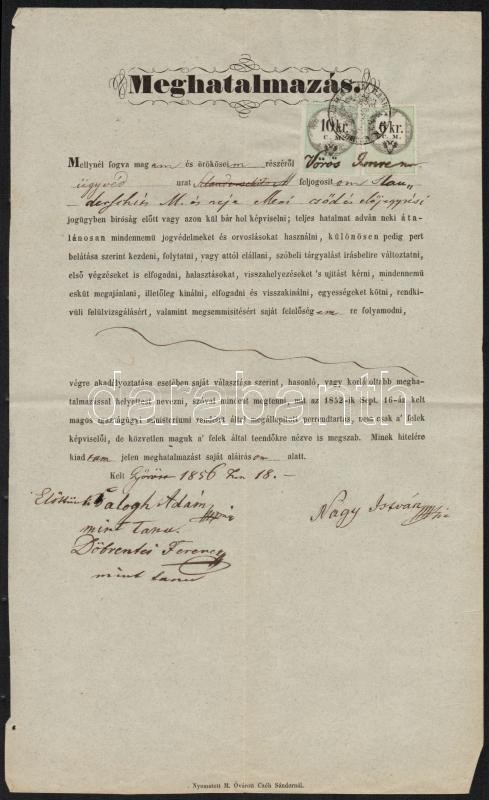 Meghatalmazás.
10 kr. 6 kr.
C. M. C. M.
Mellynél fogva magam és örököseim részéről Vörös Imre
ügyvéd urat feljogosít om Slau„
M. és neje csőd és előjegyzési
jogügyben biróság előtt vagy azon kül bár hol képviselni; teljes hatalmat adván neki áta-
lánosan mindennemü jogvédelmeket és orvoslásokat használni, különösen pedig pert
belátása szerint kezdeni, folytatni, vagy attól elállani, szóbeli tárgyalást irásbelire változtatni,
első végzéseket is elfogadni, halasztásokat, visszahelyezéseket 's ujitást kérni, mindennemü
esküt megajánlani, illetőleg kinálni, elfogadni és visszakinálni, egyességeket kötni, rendki-
vüli felülvizsgálásért, valamint megsemmisitésért saját felelőség em re folyamodni,
végre akadályoztatása esetében saját választása szerint, hasonló, vagy korlátoltabb megha-
talmazással helyettest nevezni, szóval mindent megtenni, mit az 1852-ik Sept. 16-áz kelt
magos igazságügyi ministeriumi rendelet által megállapitott perrendtartás, nem csak a' felek
képviselői, de közvetlen maguk a' felek által teendőkre nézve is megszab. Minek hitelére
kiadtam jelen meghatalmazást saját aláirásom alatt.
Kelt Győrött 1856 18. —
Előttünk Balogh Ádám
mint tanu.
Nagy István
Döbrentei Ferencz
mint tanu
darabanth
Nyomatott M. Óvárott Czéh Sándornál.